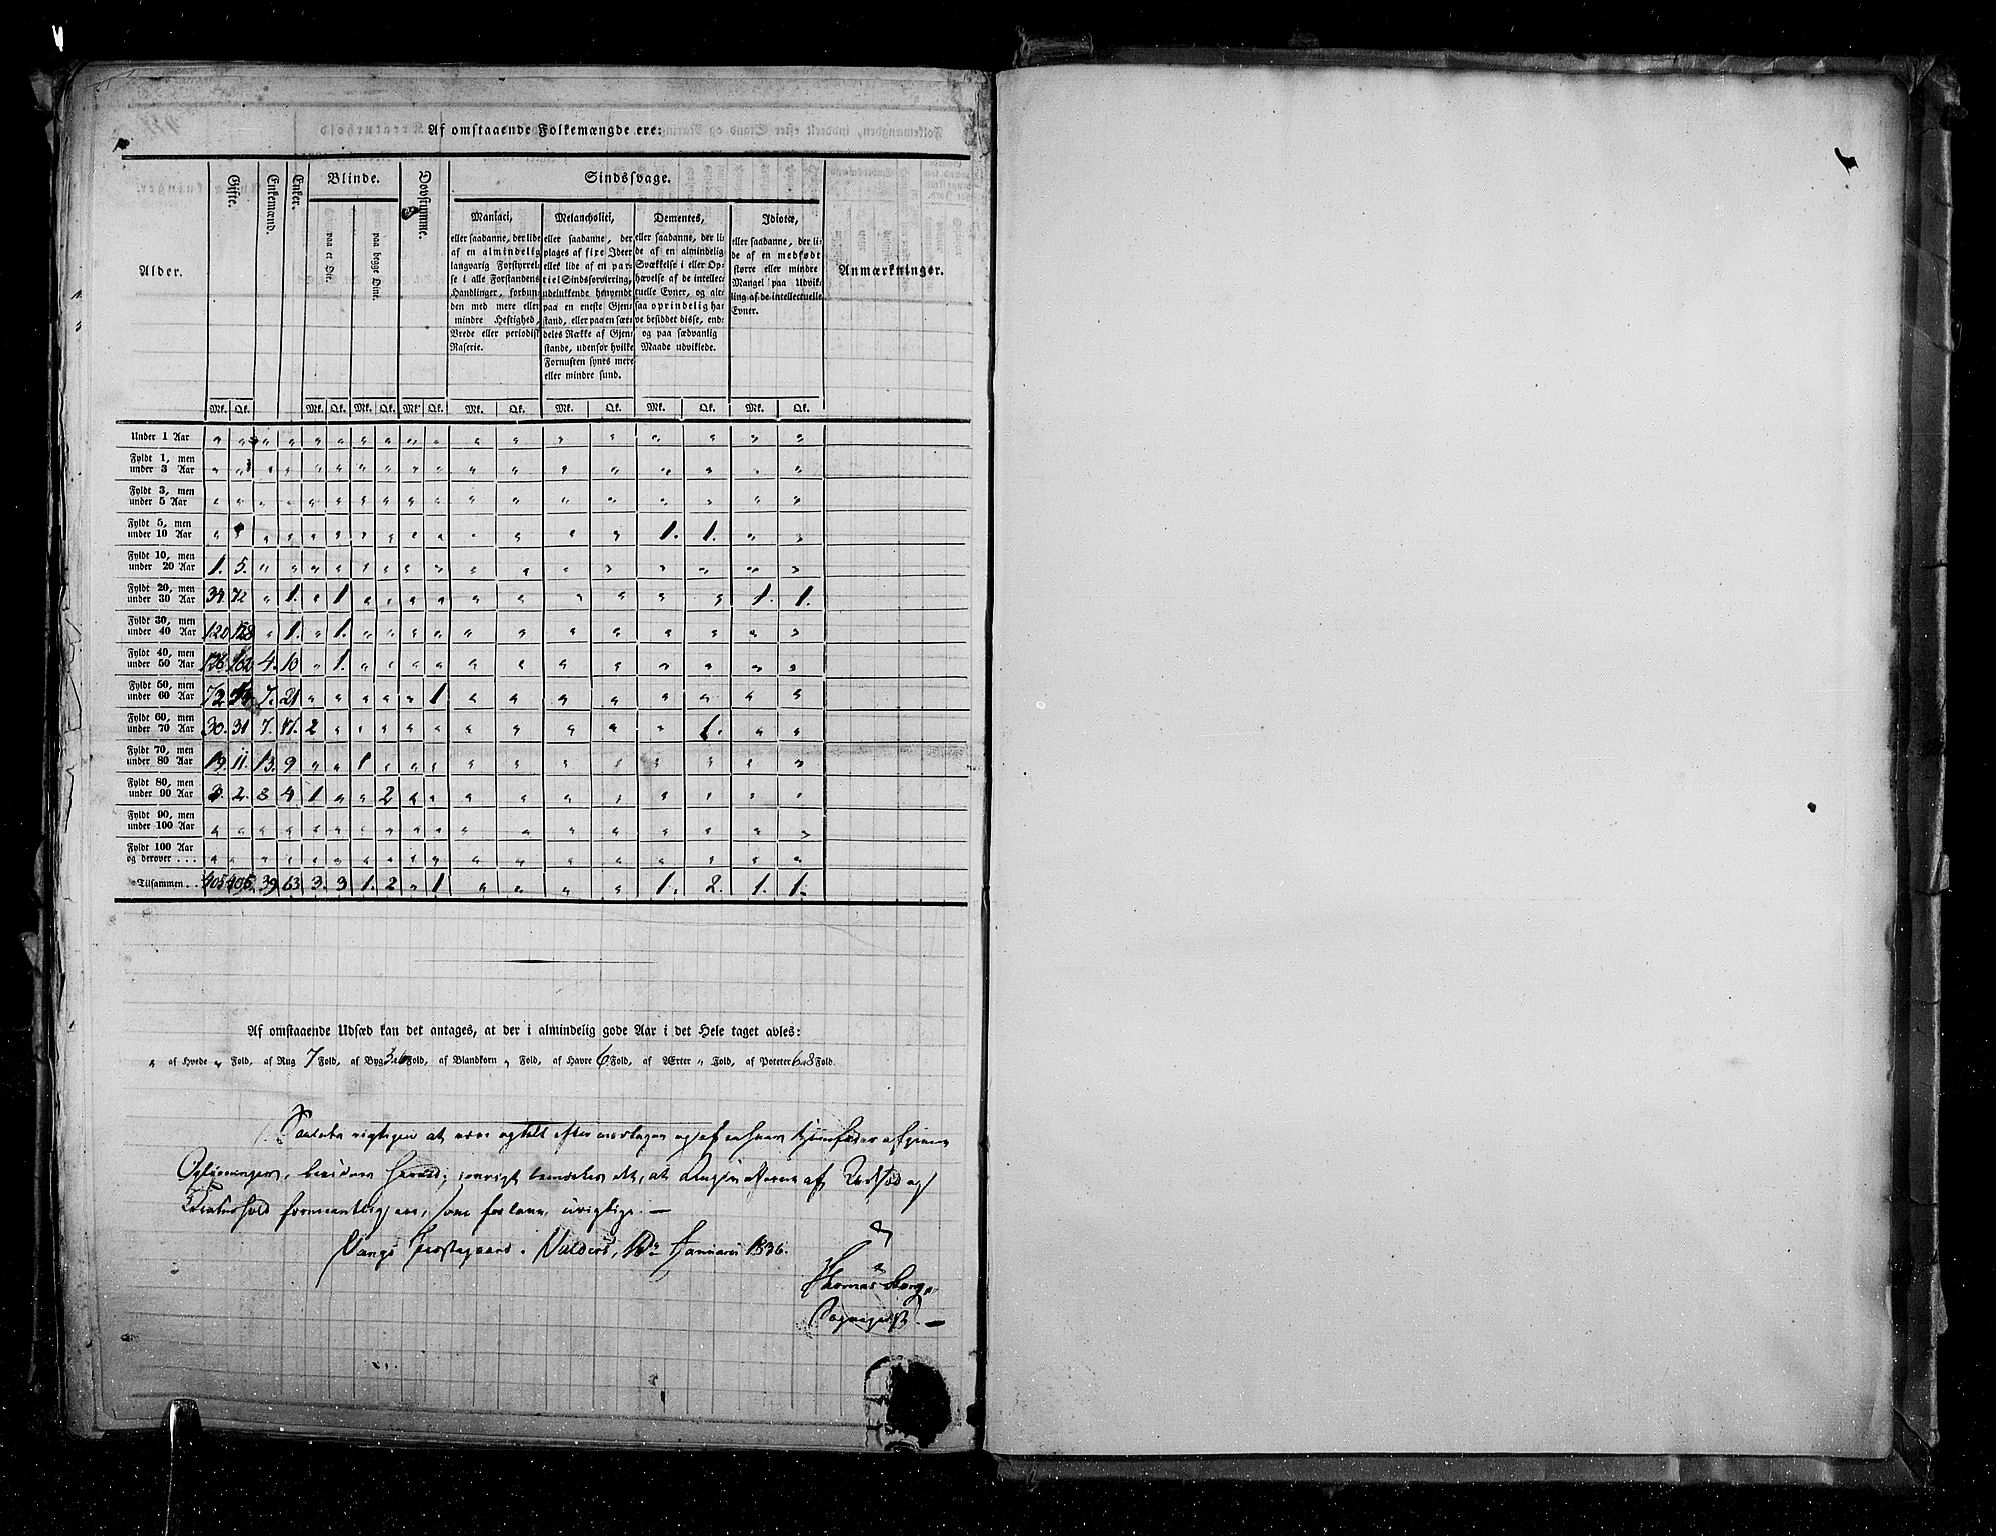 Af omstaaende Folkemængde ere:
Alder.
Gifte.
Enkemænd.
Enker.
Blinde.
paa et Øie.
paa begge Øine.
Døvstumme.
Sindssvage.
Maniaci,
eller saadanne, der lide
af en almindelig
langvarig Forstyrrel-
se i alle Forstandens
Handlinger, forbun-
den med mere eller
mindre Heftighed,
Vrede eller periodisk
Raserie.
Melancholici,
eller saadanne, der
plages af fixe Ideer
eller lide af en par-
tiel Sindsforvirring,
udelukkende henvendt
paa en eneste Gjen-
stand, eller paa en sær-
deles Række af Gjen-
stande, udenfor hvilke
Fornuften synes mere
eller mindre sund.
Dementes,
eller saadanne, der li-
de af en almindelig
Svækkelse i eller Op-
hævelse af de intellec-
tuelle Evner, og alt-
saa oprindelig ha-
ve besiddet disse, end-
og paa sædvanlig
Maade udviklede.
Idiotæ,
eller saadanne, der li-
de af en medfødt
større eller mindre
Mangel paa Udvik-
ling af de intellectuelle
Evner.
Anmærkninger.
Mk. Qk. Mk. Qk. Mk. Qk. Mk. Qk. Mk. Qk. Mk. Qk. Mk. Qk. Mk. Qk.
Under 1 Aar " " " " " " " " " " " " " " " " " "
Fyldt 1, men
under 3 Aar " " " " " " " " " " " " " " " " " "
Fyldt 3, men
under 5 Aar " " " " " " " " " " " " " " " " " "
Fyldt 5, men
under 10 Aar " " " " " " " " " " " " " " 1. 1. " "
Fyldt 10, men
under 20 Aar 1. 5. " " " " " " " " " " " " " " " "
Fyldt 20, men
under 30 Aar 34 72 " 1. " 1 " " " " " " " " " " 1. 1.
Fyldt 30, men
under 40 Aar 120 128 " 1. " 1. " " " " " " " " " " " "
Fyldt 40, men
under 50 Aar 126 162 4. 10 " 1. " " " " " " " " " " " "
Fyldt 50, men
under 60 Aar 72 7. 21 " " " " " 1 " " " " " " " "
Fyldt 60, men
under 70 Aar 30. 31 7. 17. 2 " " " " " " " " " " 1. " "
Fyldt 70, men
under 80 Aar 19. 11. 13. 9 " " 1 " " " " " " " " " " "
Fyldt 80, men
under 90 Aar 3. 2. 8 4 1 " " 2 " " " " " " " " " "
Fyldt 90, men
under 100 Aar " " " " " " " " " " " " " " " " " "
Fyldt 100 Aar
og derover . . . " " " " " " " " " " " " " " " " " "
Tilsammen . . 405 405. 39 63 3. 3 1. 2 " 1 " " " " 1. 2. 1. 1.
Af omstaaende Udsæd kan det antages, at der i almindelig gode Aar i det Hele taget avles:
" af Hvede " Fold, af Rug 7 Fold, af Byg 5 a 6 Fold, af Blandkorn " Fold, af Havre 6 Fold, af Ærter " Fold, af Poteter 6 a 8 Fold.
rigtigen at være optalt efter og af
Oplysninger, herved; iøvrigt bemærkes det, at Angivelserne af Udsæd og
Creaturhold formeentligen, som forlanu, urigtige. —
Vangs Præstegaard i Valders, Januari 1836.
Thomas Borg,
Sognepræst. —